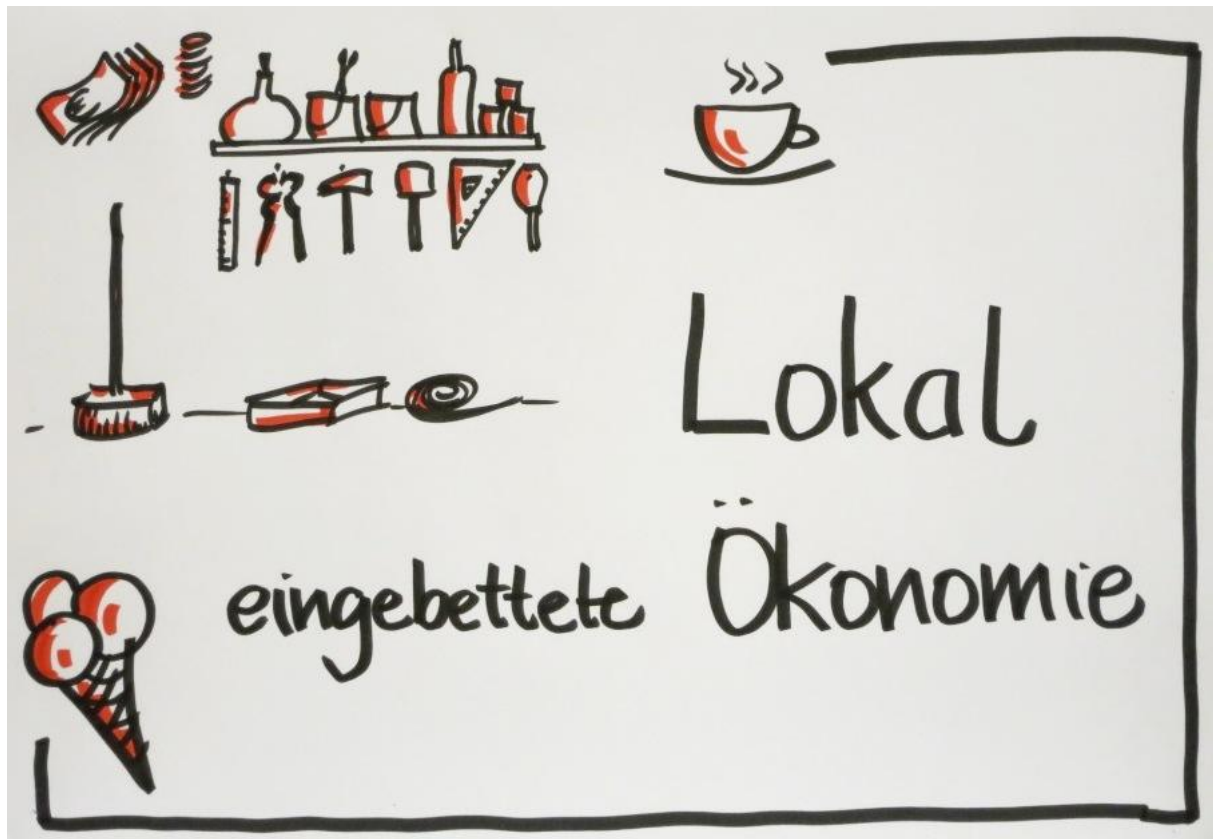 Lokal
eingebettete Ökonomie